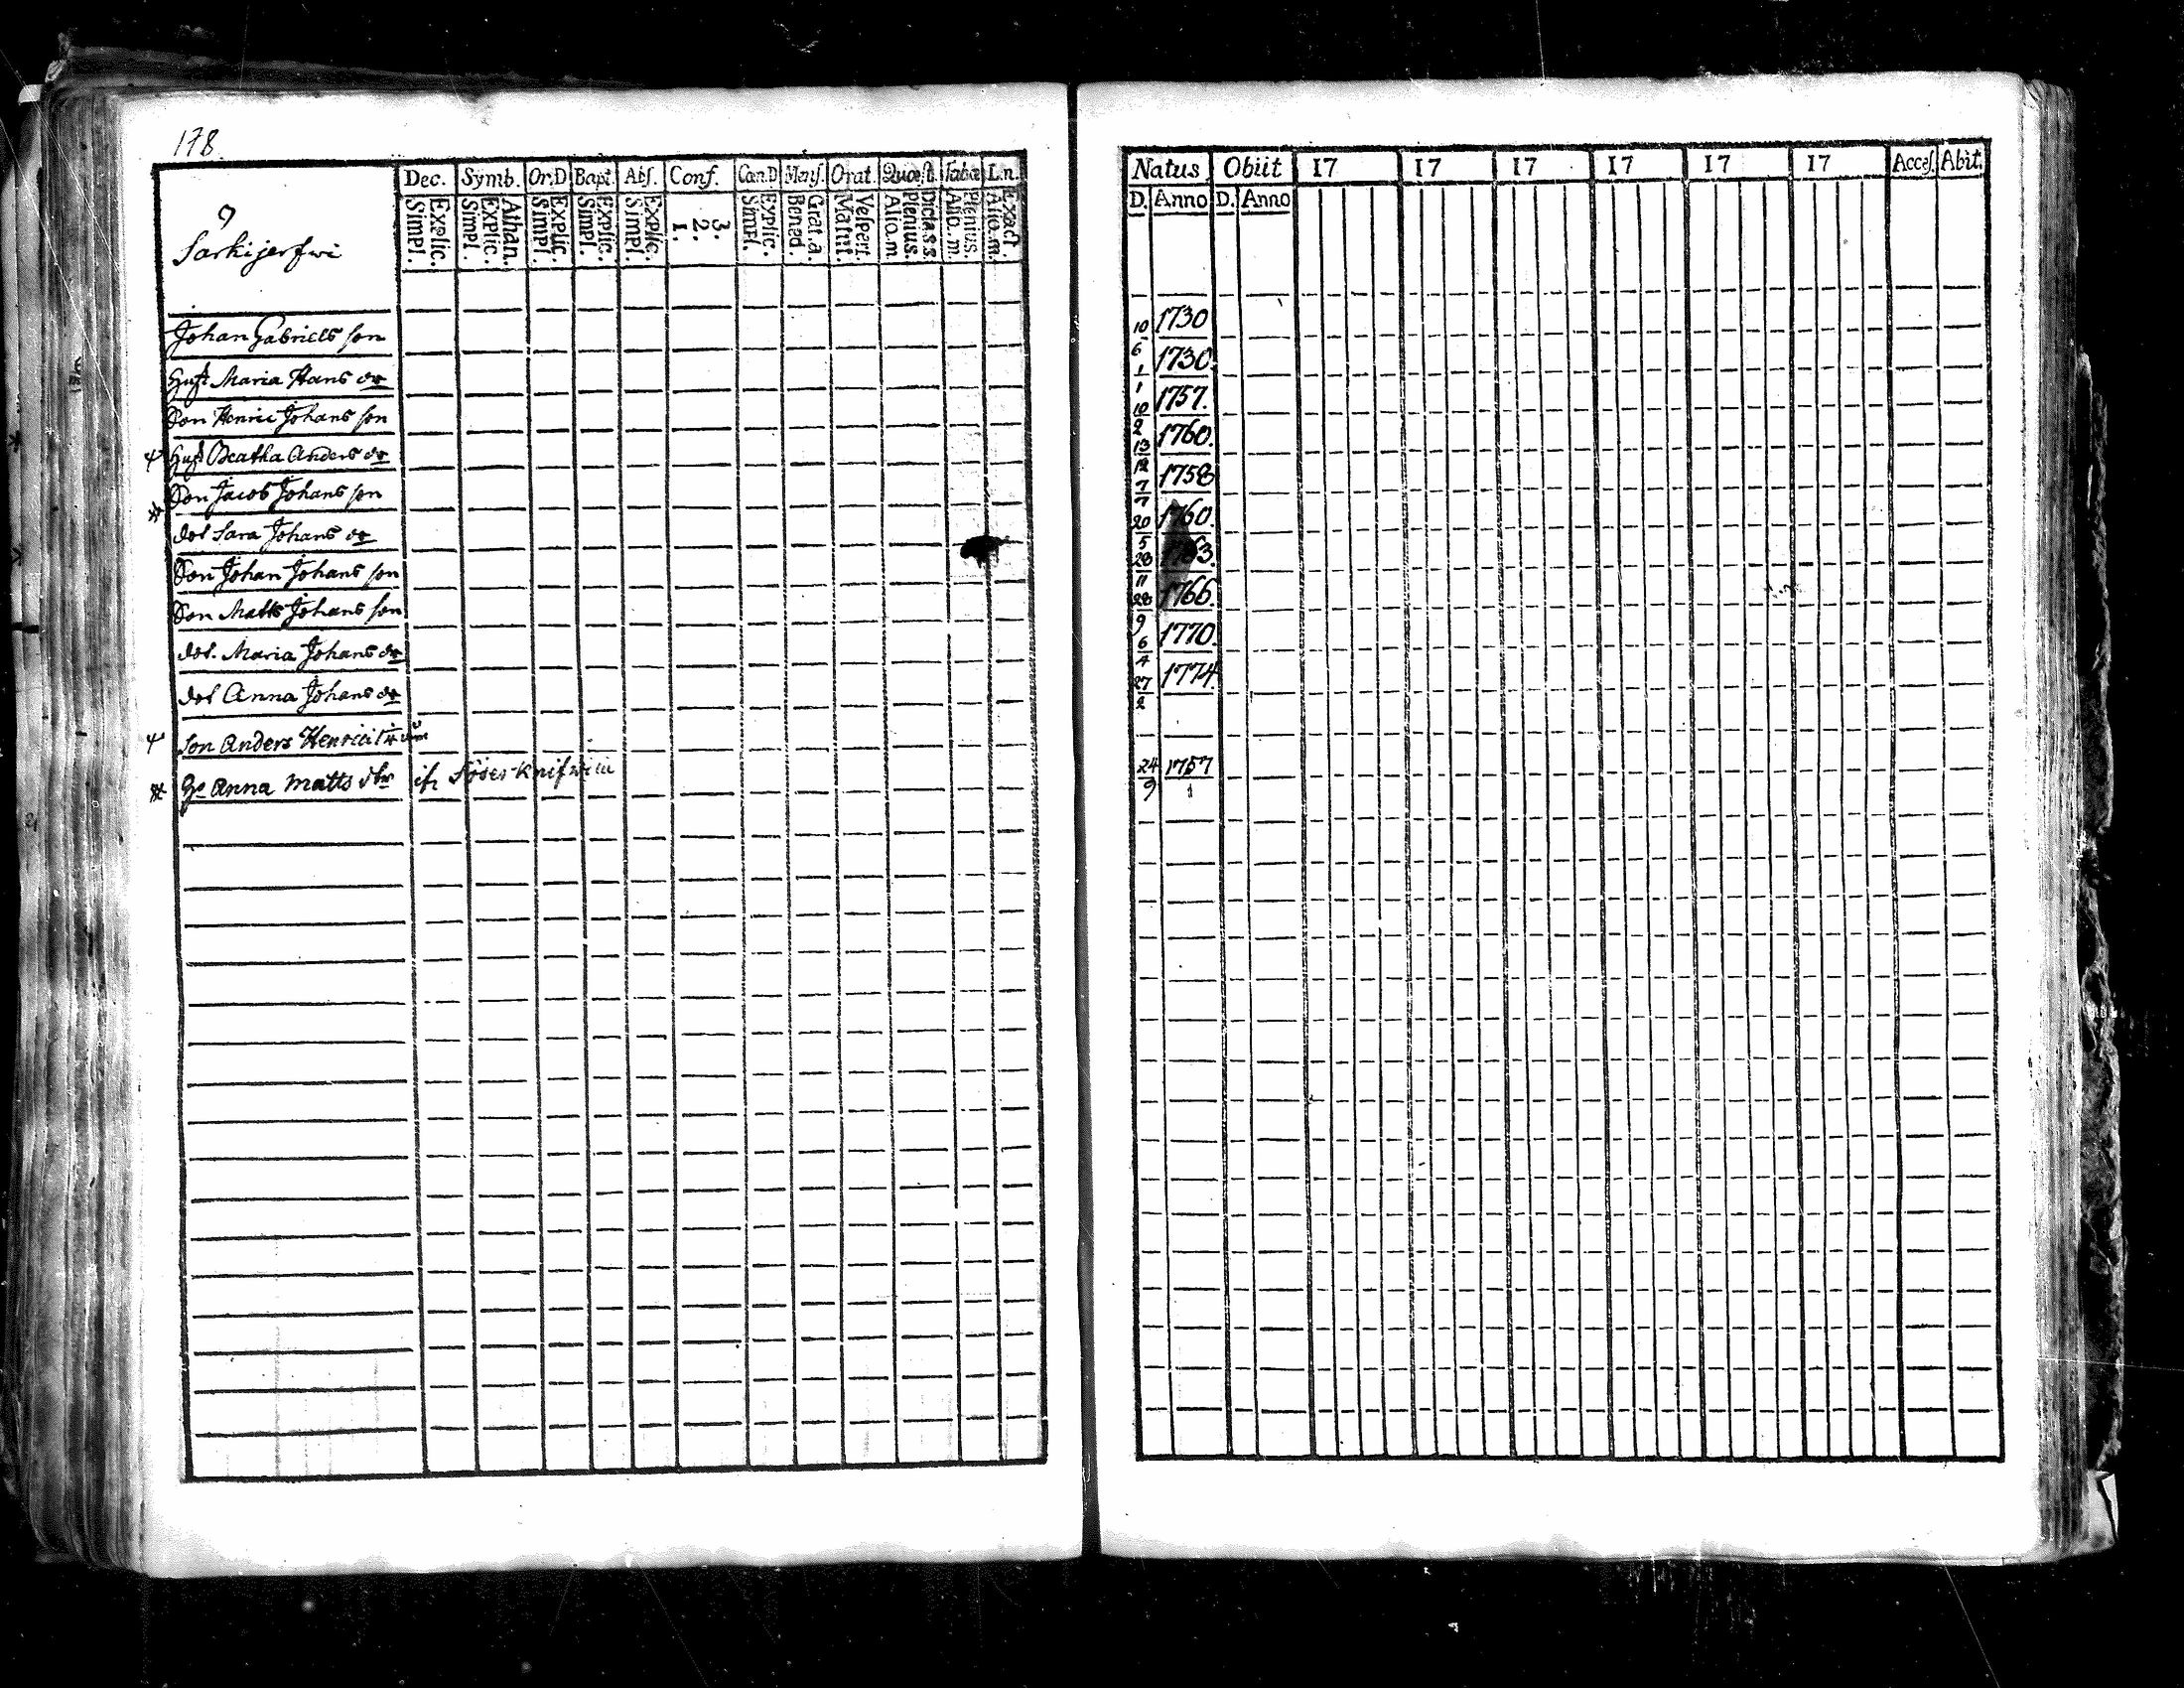 178
Dec. Symb. Or.D Bapt. Abs. Conf. Can.D Mens. Orat. Quæst. Tabæ L.n.
Explic. Simpl. Athan. Explic. Simpl. Explic. Simpl. Explic. Simpl. Explic. Simpl. 3. 2. 1. Explic. Simpl. Grat.a. Bened. Vespert. Matut. Dicta s.s. Plenius. Aliq.m. Plenius. Aliq.m. Exact. Aliq.m.
9
Särkijerfwi
Johan Gabriels son
Hust Maria Hans dr
Son Henric Johans son
Hust Beatha Anders dr
Son Jacob Johans son
dot Sara Johans dr
Son Johan Johans son
Son Matts Johans son
dot. Maria Johans dr
dot Anna Johans dr
Son Anders Henrici
Hu Anna Matts dtr ifr
Natus Obiit 17 17 17 17 17 17 Acces. Abit.
D. Anno D. Anno
10/6 1730
1/1 1730.
10/2 1757.
13/12 1760.
7/7 1758
20/5 1760.
28/11 1763.
28/9 1766.
6/4 1770.
27/2 1774
24/9 1757